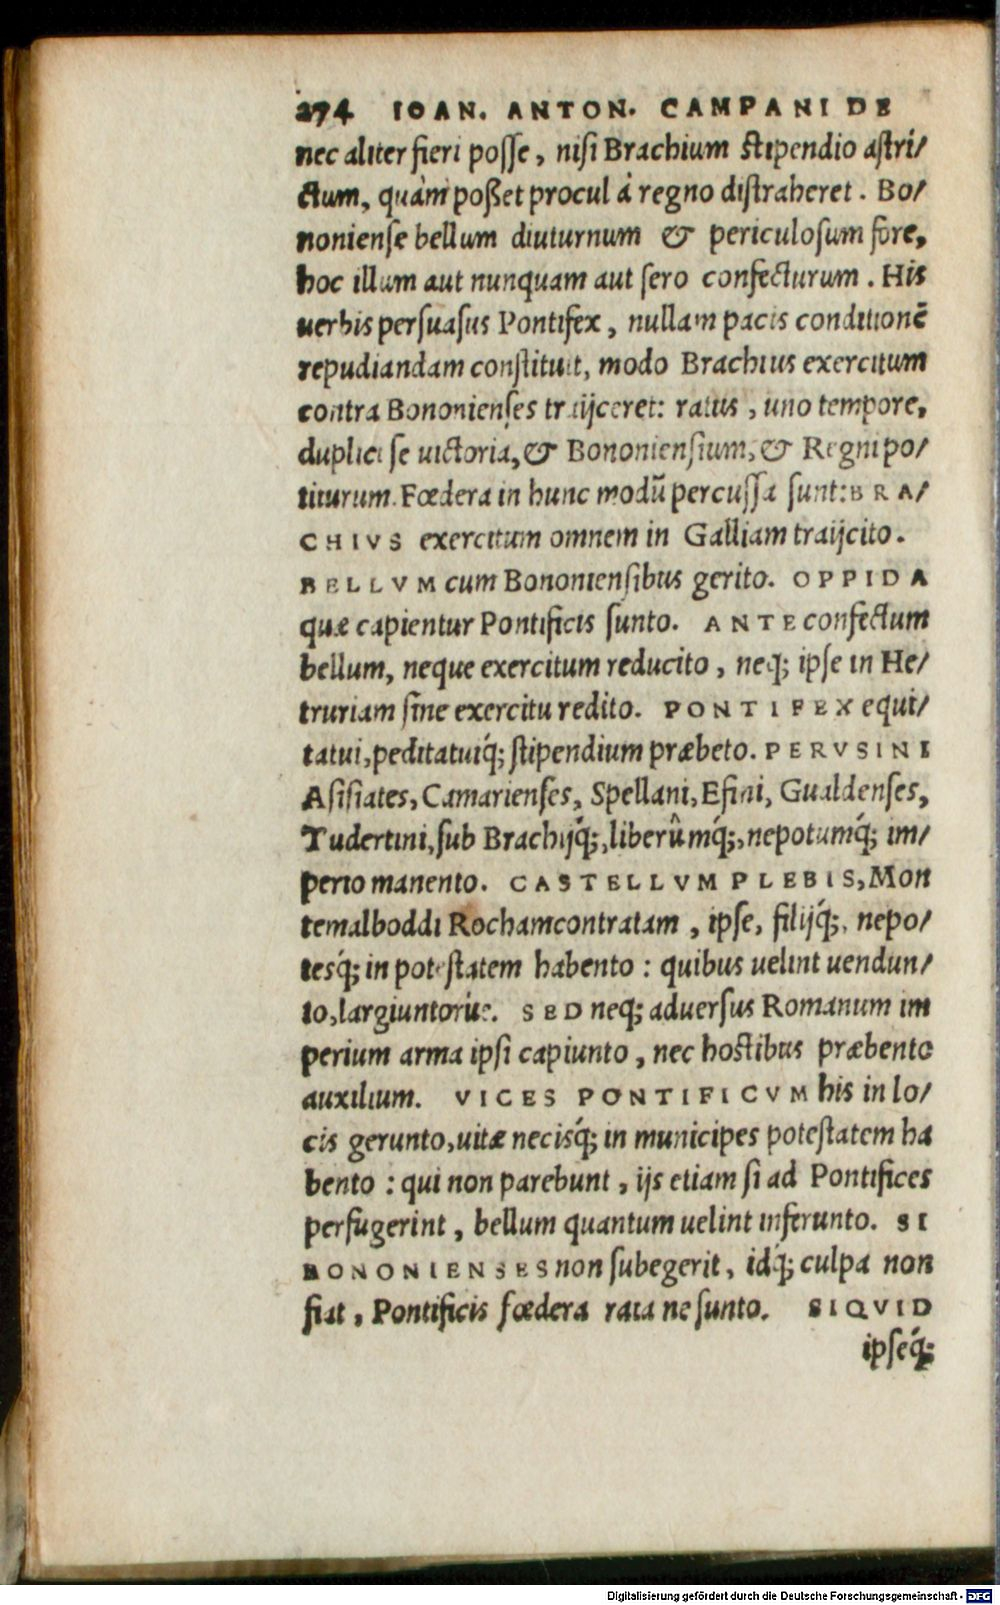 274 IOAN. ANTON. CAMPANI DE
nec aliter fieri posse, nisi Brachium stipendio astri/
ctum, quàm poßet procul á regno distraheret. Bo/
noniense bellum diuturnum & periculosum fore,
hoc illum aut nunquam aut sero confecturum. His
uerbis persuasus Pontifex, nullam pacis conditionē
repudiandam constituit, modo Brachius exercitum
contra Bononienses traijceret: ratus, uno tempore,
duplici se uictoria, & Bononiensium, & Regni po/
titurum. Fœdera in hunc modū percussa sunt: BRA/
CHIVS exercitum omnem in Galliam traijcito.
BELLVM cum Bononiensibus gerito. OPPIDA
quæ capientur Pontificis sunto. ANTE confectum
bellum, neque exercitum reducito, neq; ipse in He/
truriam sine exercitu redito. PONTIFEX equi/
tatui, peditatuiq́; stipendium præbeto. PERVSINI
Asisiates, Camarienses, Spellani, Esini, Gualdenses,
Tudertini, sub Brachijq́;, liberûmq́;, nepotumq́; im/
perio manento. CASTELLVM PLEBIS, Mon
temalboddi Rochamcontratam, ipse, filijq́;, nepo/
tesq́; in potestatem habento: quibus uelint uendun/
to, largiuntorue. SED neq; aduersus Romanum im
perium arma ipsi capiunto, nec hostibus præbento
auxilium. VICES PONTIFICVM his in lo/
cis gerunto, uitæ necisq́; in municipes potestatem ha
bento: qui non parebunt, ijs etiam si ad Pontifices
perfugerint, bellum quantum uelint inferunto. SI
BONONIENSES non subegerit, idq́; culpa non
fiat, Pontificis fœdera rata ne sunto. SIQVID
ipseq́;
Digitalisierung gefördert durch die Deutsche Forschungsgemeinschaft - DFG